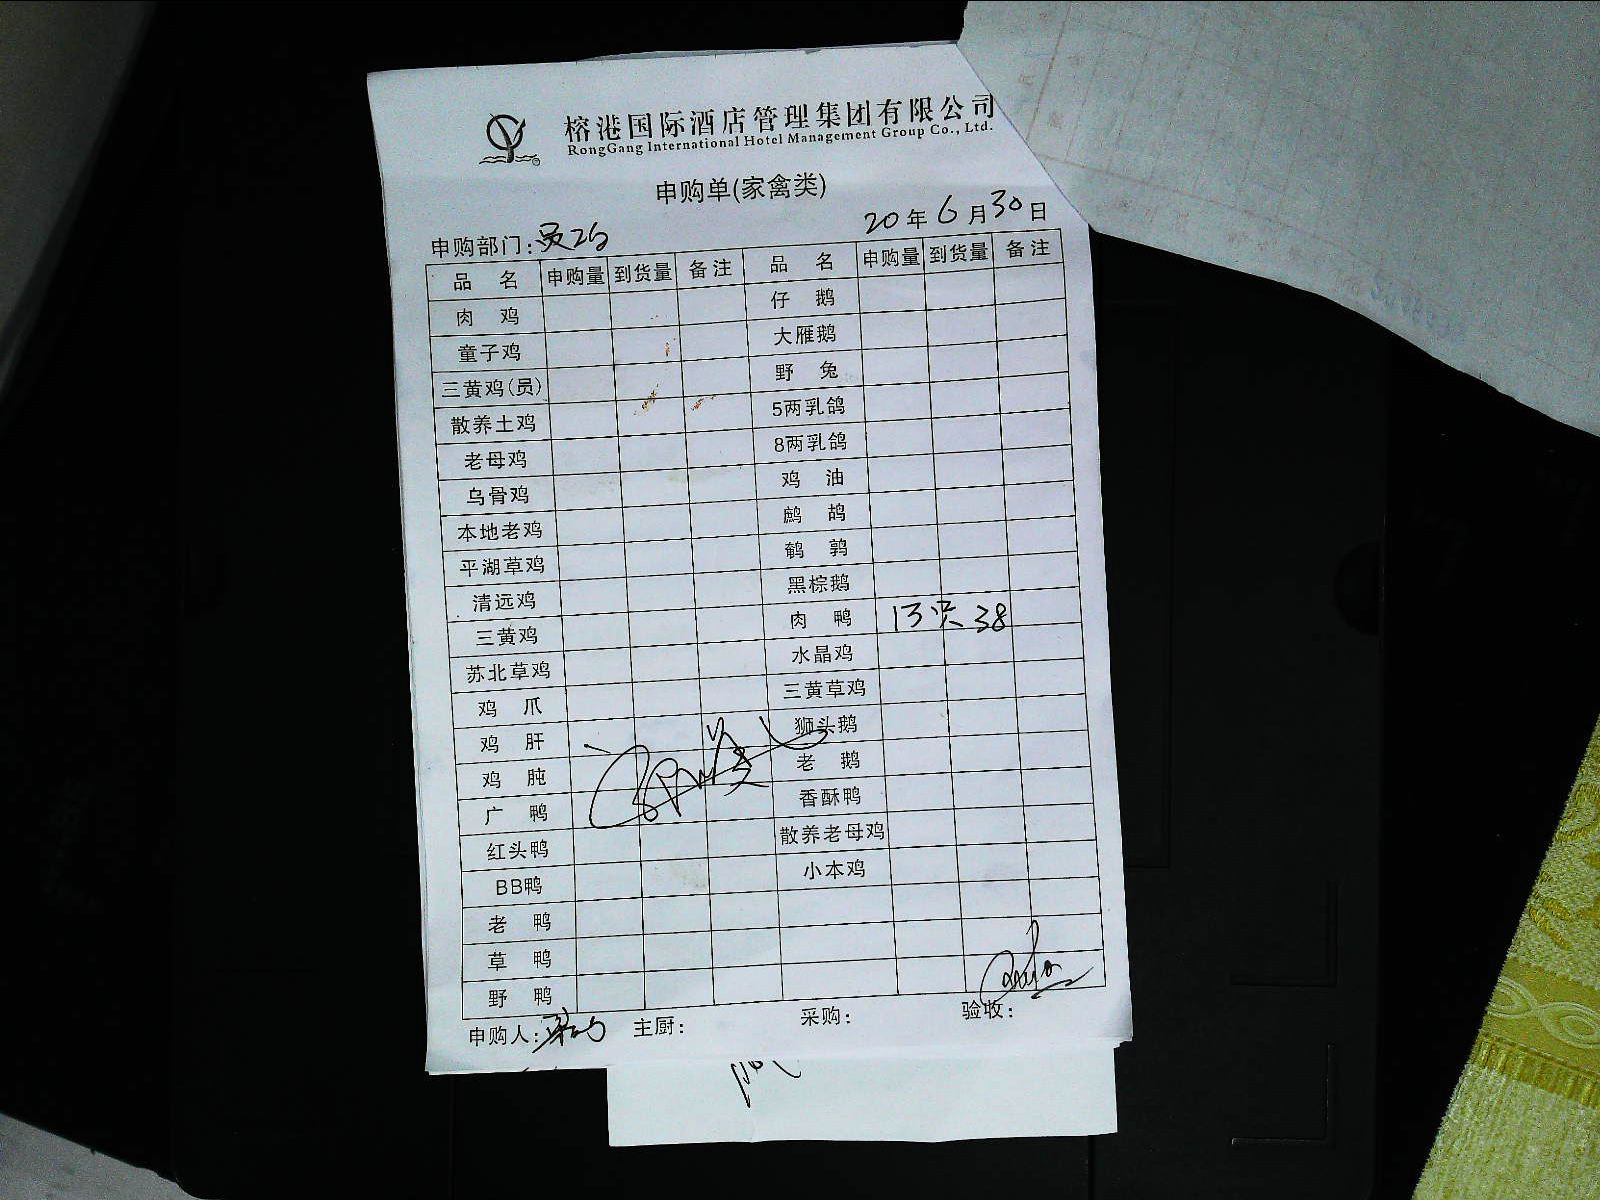 榕港国际酒店管理集团有限公司
RongGang International Hotel Management Group Co., Ltd.
申购单(家禽类)
申购部门: 20年6月30日
品 名 申购量 到货量 备注 品 名 申购量 到货量 备注
肉 鸡 仔 鹅
童子鸡 大雁鹅
三黄鸡(员) 野 兔
散养土鸡 5两乳鸽
老母鸡 8两乳鸽
乌骨鸡 鸡 油
本地老鸡 鹧 鸪
平湖草鸡 鹌 鹑
清远鸡 黑棕鹅
三黄鸡 肉 鸭 13只 38
苏北草鸡 水晶鸡
鸡 爪 三黄草鸡
鸡 肝 狮头鹅
鸡 肫 老 鹅
广 鸭 香酥鸭
红头鸭 散养老母鸡
BB鸭 小本鸡
老 鸭
草 鸭
野 鸭
申购人: 主厨: 采购: 验收: